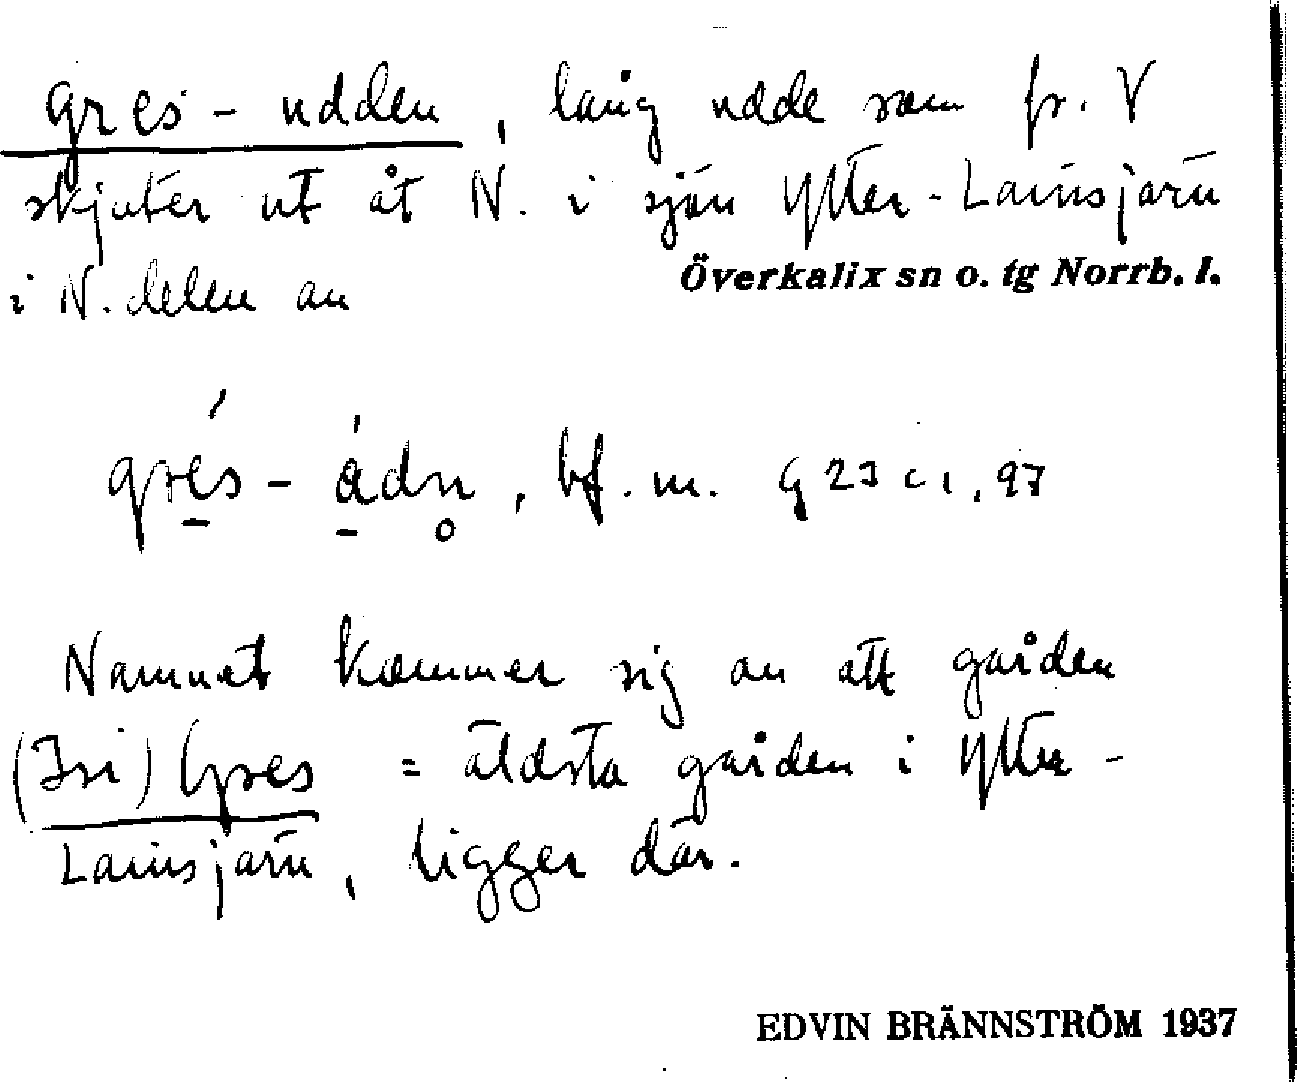 Gres-udden, lång udde som fr. V
skjuter ut åt N. i sjön Ytter-Lansjärv
i N. delen av Överkalix sn o. tg Norrb. l.
grès-àdn̥, bf. m. G 23 c 1, 97
Namnet kommer sig av att gården
(Isi) Gres = äldsta gården i Ytter-
Lansjärv, ligger där.
EDVIN BRÄNNSTRÖM 1937